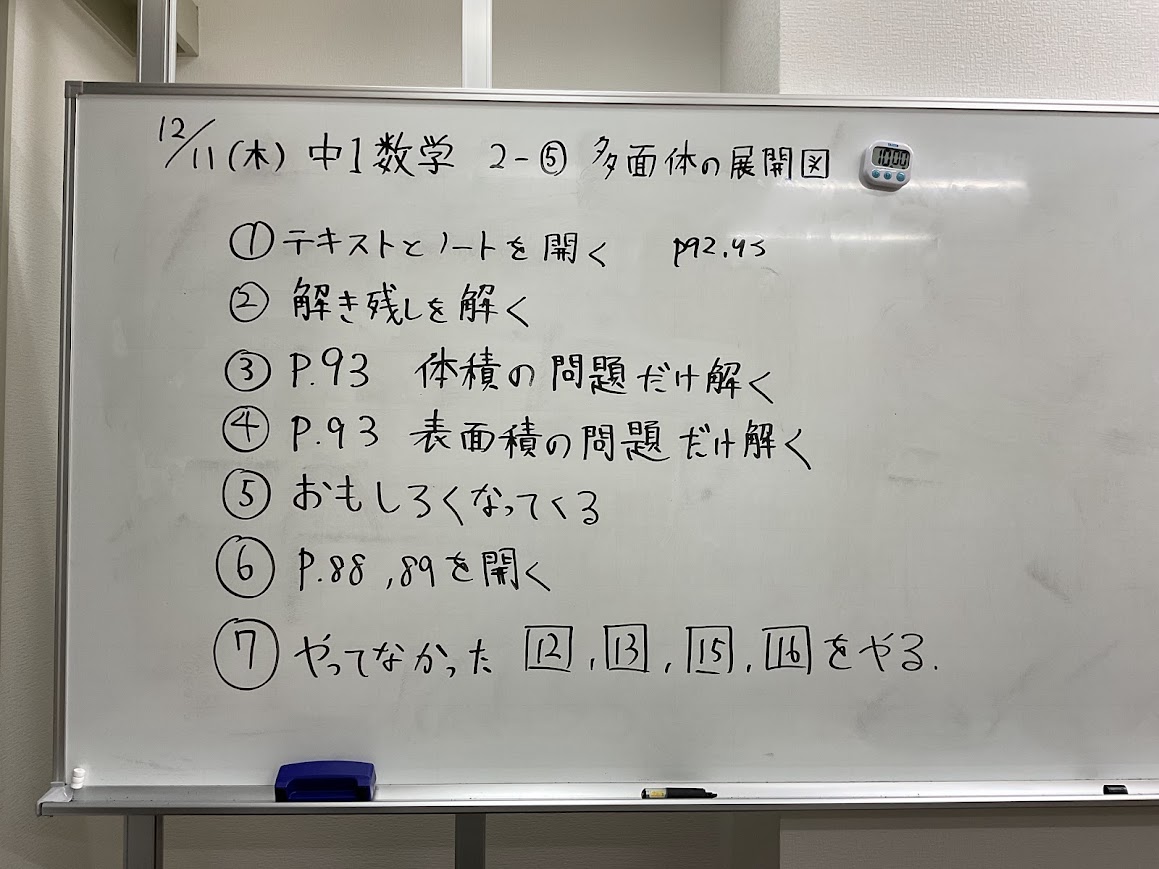 12/11(木) 中1数学 2-⑤ 多面体の展開図
10:00
①テキストとノートを開く p92.93
②解き残しを解く
③P.93 体積の問題だけ解く
④P.93 表面積の問題だけ解く
⑤おもしろくなってくる
⑥P.88,89を開く
⑦やってなかった 12,13,15,16をやる.